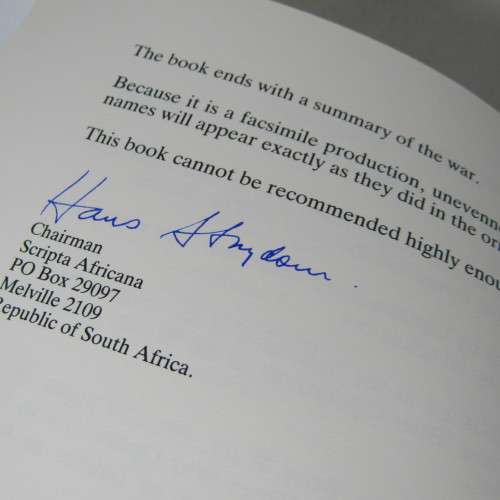 The book ends with a summary of the war.
Because it is a facsimile production, unevenn
names will appear exactly as they did in the ori
This book cannot be recommended highly enou
Hans Strydom.
Chairman
Scripta Africana
PO Box 29097
Melville 2109
Republic of South Africa.